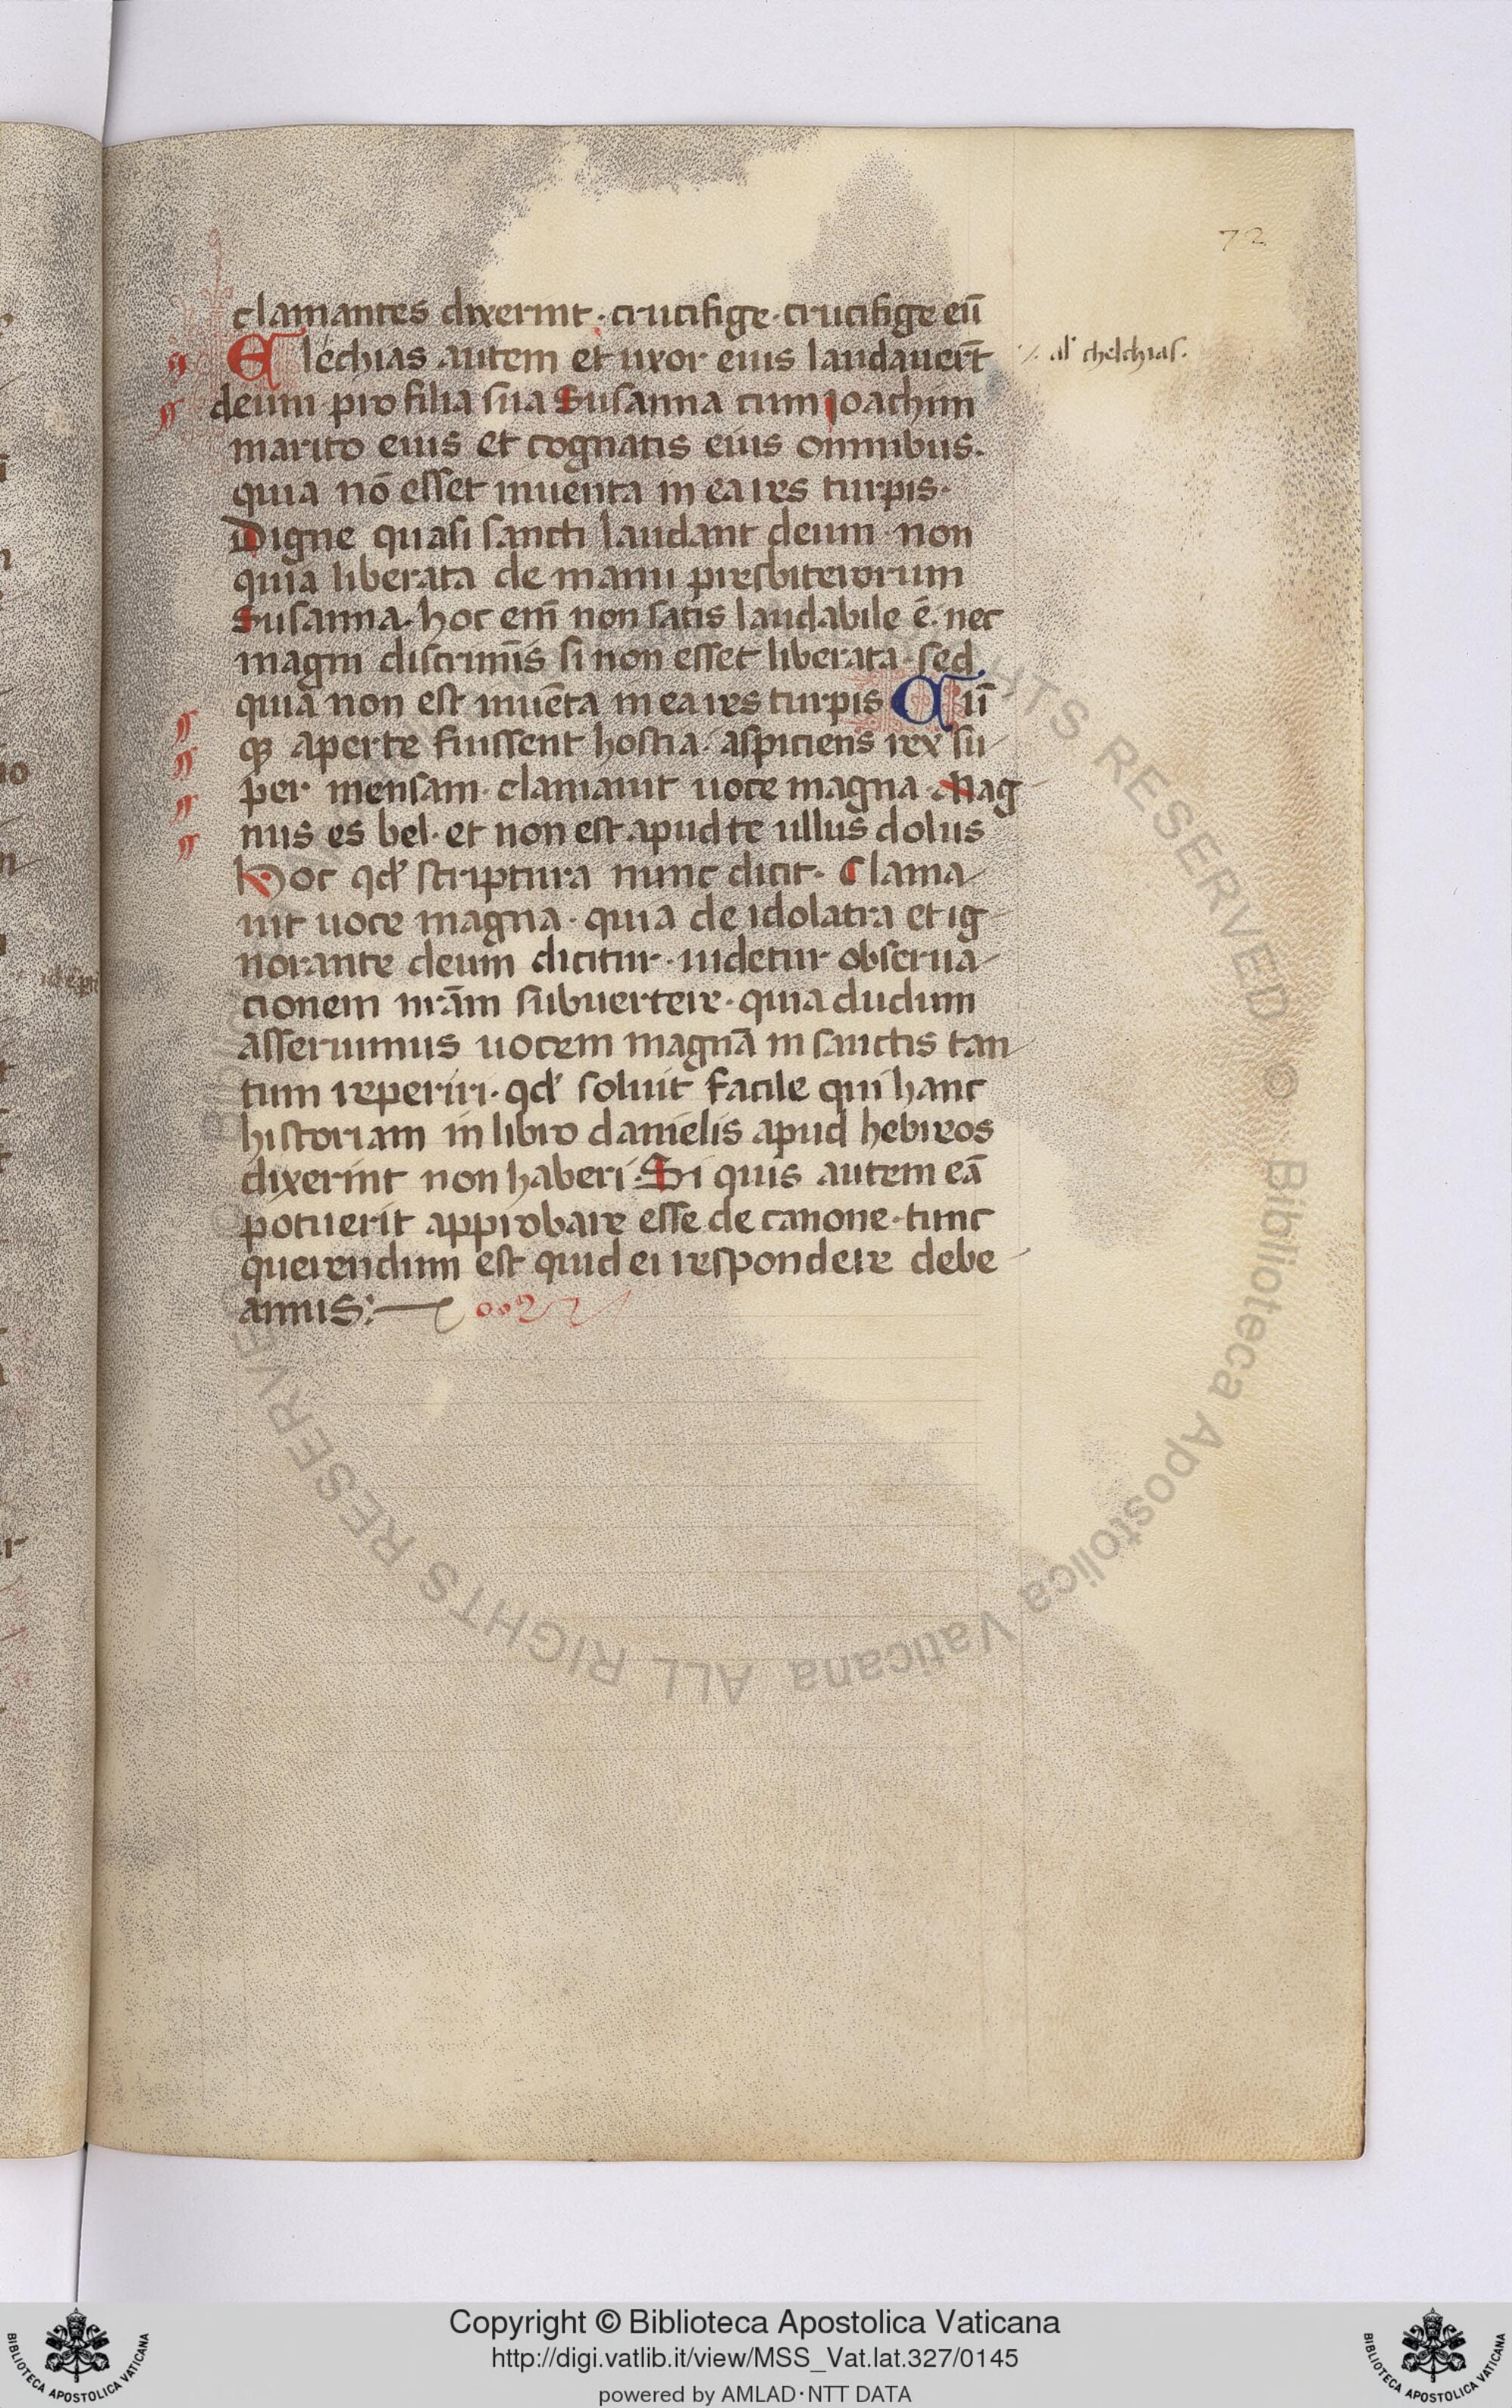 72
clamantes dixerint · crucifige · crucifige eū
Elechias autem et uxor eius laudauert̄
·/. al' chelchias.
deum pro filia sua Susanna cum Joachim
marito eius et cognatis eius omnibus.
quia nō esset inuenta in ea res turpis.
Digne quasi sancti laudant deum · non
quia liberata de manu presbiterorum
Susanna. hoc em̄ non satis laudabile ē. nec
magni discrimīs si non esset liberata · sed
quia non est inuēta in ea res turpis Cū
qꝫ aperte fuissent hostia. aspiciens rex su
per mensam. clamauit uoce magna. Mag
nus es bel. et non est apud te ullus dolus
Hoc qd' scriptura nunc dicit. Clama
uit uoce magna · quia de idolatra et ig
norante deum dicitur · uidetur obserua
cionem nr̄am subuertere · quia dudum
asseruimus uocem magnā in sanctis tan
tum reperiri · qd' soluit facile qui hanc
historiam in libro danielis apud hebreos
dixerint non haberi. Si quis autem eā
potuerit approbare esse de canone · tunc
querendum est quid ei respondere debe
amus:
Copyright © Biblioteca Apostolica Vaticana
http://digi.vatlib.it/view/MSS_Vat.lat.327/0145
powered by AMLAD·NTT DATA
BIBLIOTECA APOSTOLICA VATICANA
BIBLIOTECA APOSTOLICA VATICANA
ALL RIGHTS RESERVED © Biblioteca Apostolica Vaticana ALL RIGHTS RESERVED